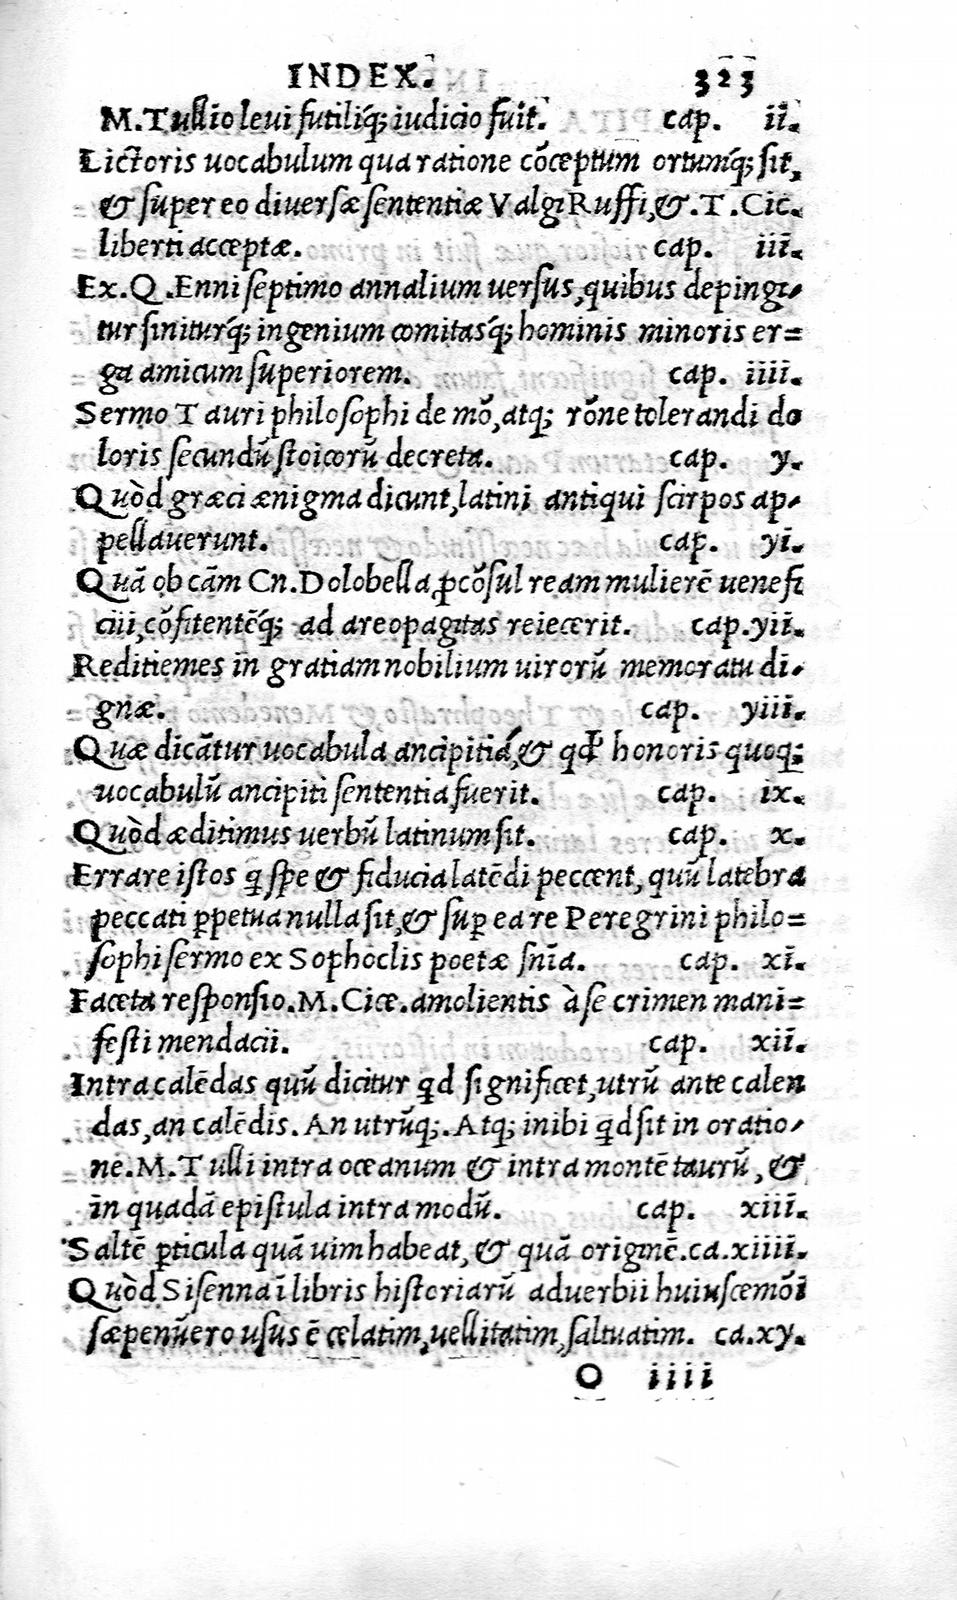 INDEX. 323
M.Tullio leui futiliq́; iudicio fuit. cap. ii.
Lictoris uocabulum qua ratione cōceptum ortumq́; sit,
& super eo diuersæ sententiæ Valgi Ruffi,&.T.Cic.
liberti acceptæ. cap. iii.
Ex.Q.Enni septimo annalium uersus,quibus depingi⸗
tur finiturq́; ingenium comitasq́; hominis minoris er=
ga amicum superiorem. cap. iiii.
Sermo Tauri philosophi de mō,atq; rōne tolerandi do
loris secundū stoicorū decreta. cap. y.
Quòd græci ænigma dicunt,latini antiqui scirpos ap⸗
pellauerunt. cap. yi.
Quā ob cām Cn.Dolobella ꝓcōsul ream mulierē uenefi
cii,cōfitentēq́; ad areopagitas reiecerit. cap.yii.
Reditiemes in gratiam nobilium uirorū memoratu di⸗
gnæ. cap. yiii.
Quæ dicātur uocabula ancipitia,& qđ honoris quoq;
uocabulū ancipiti sententia fuerit. cap. ix.
Quòd æditimus uerbū latinum sit. cap. x.
Errare istos q̄ spe & fiducia latēdi peccent, quū latebra
peccati ꝑpetua nulla sit,& suꝑ ea re Peregrini philo=
sophi sermo ex Sophoclis poetæ sn̄ia. cap. xi.
Faceta responsio.M.Cice.amolientis à se crimen mani=
festi mendacii. cap. xii.
Intra calēdas quū dicitur qd significet,utrū ante calen
das,an calēdis.An utrūq;.Atq; inibi qd sit in oratio⸗
ne.M.Tulli intra oceanum & intra montē taurū,&
in quadā epistula intra modū. cap. xiii.
Saltē ꝑticula quā uim habeat,& quā originē.ca.xiiii.
Quòd Sisenna ī libris historiarū aduerbii huiuscemōi
sæpenūero usus ē celatim,uellitatim,saltuatim. ca.xy.
O iiii